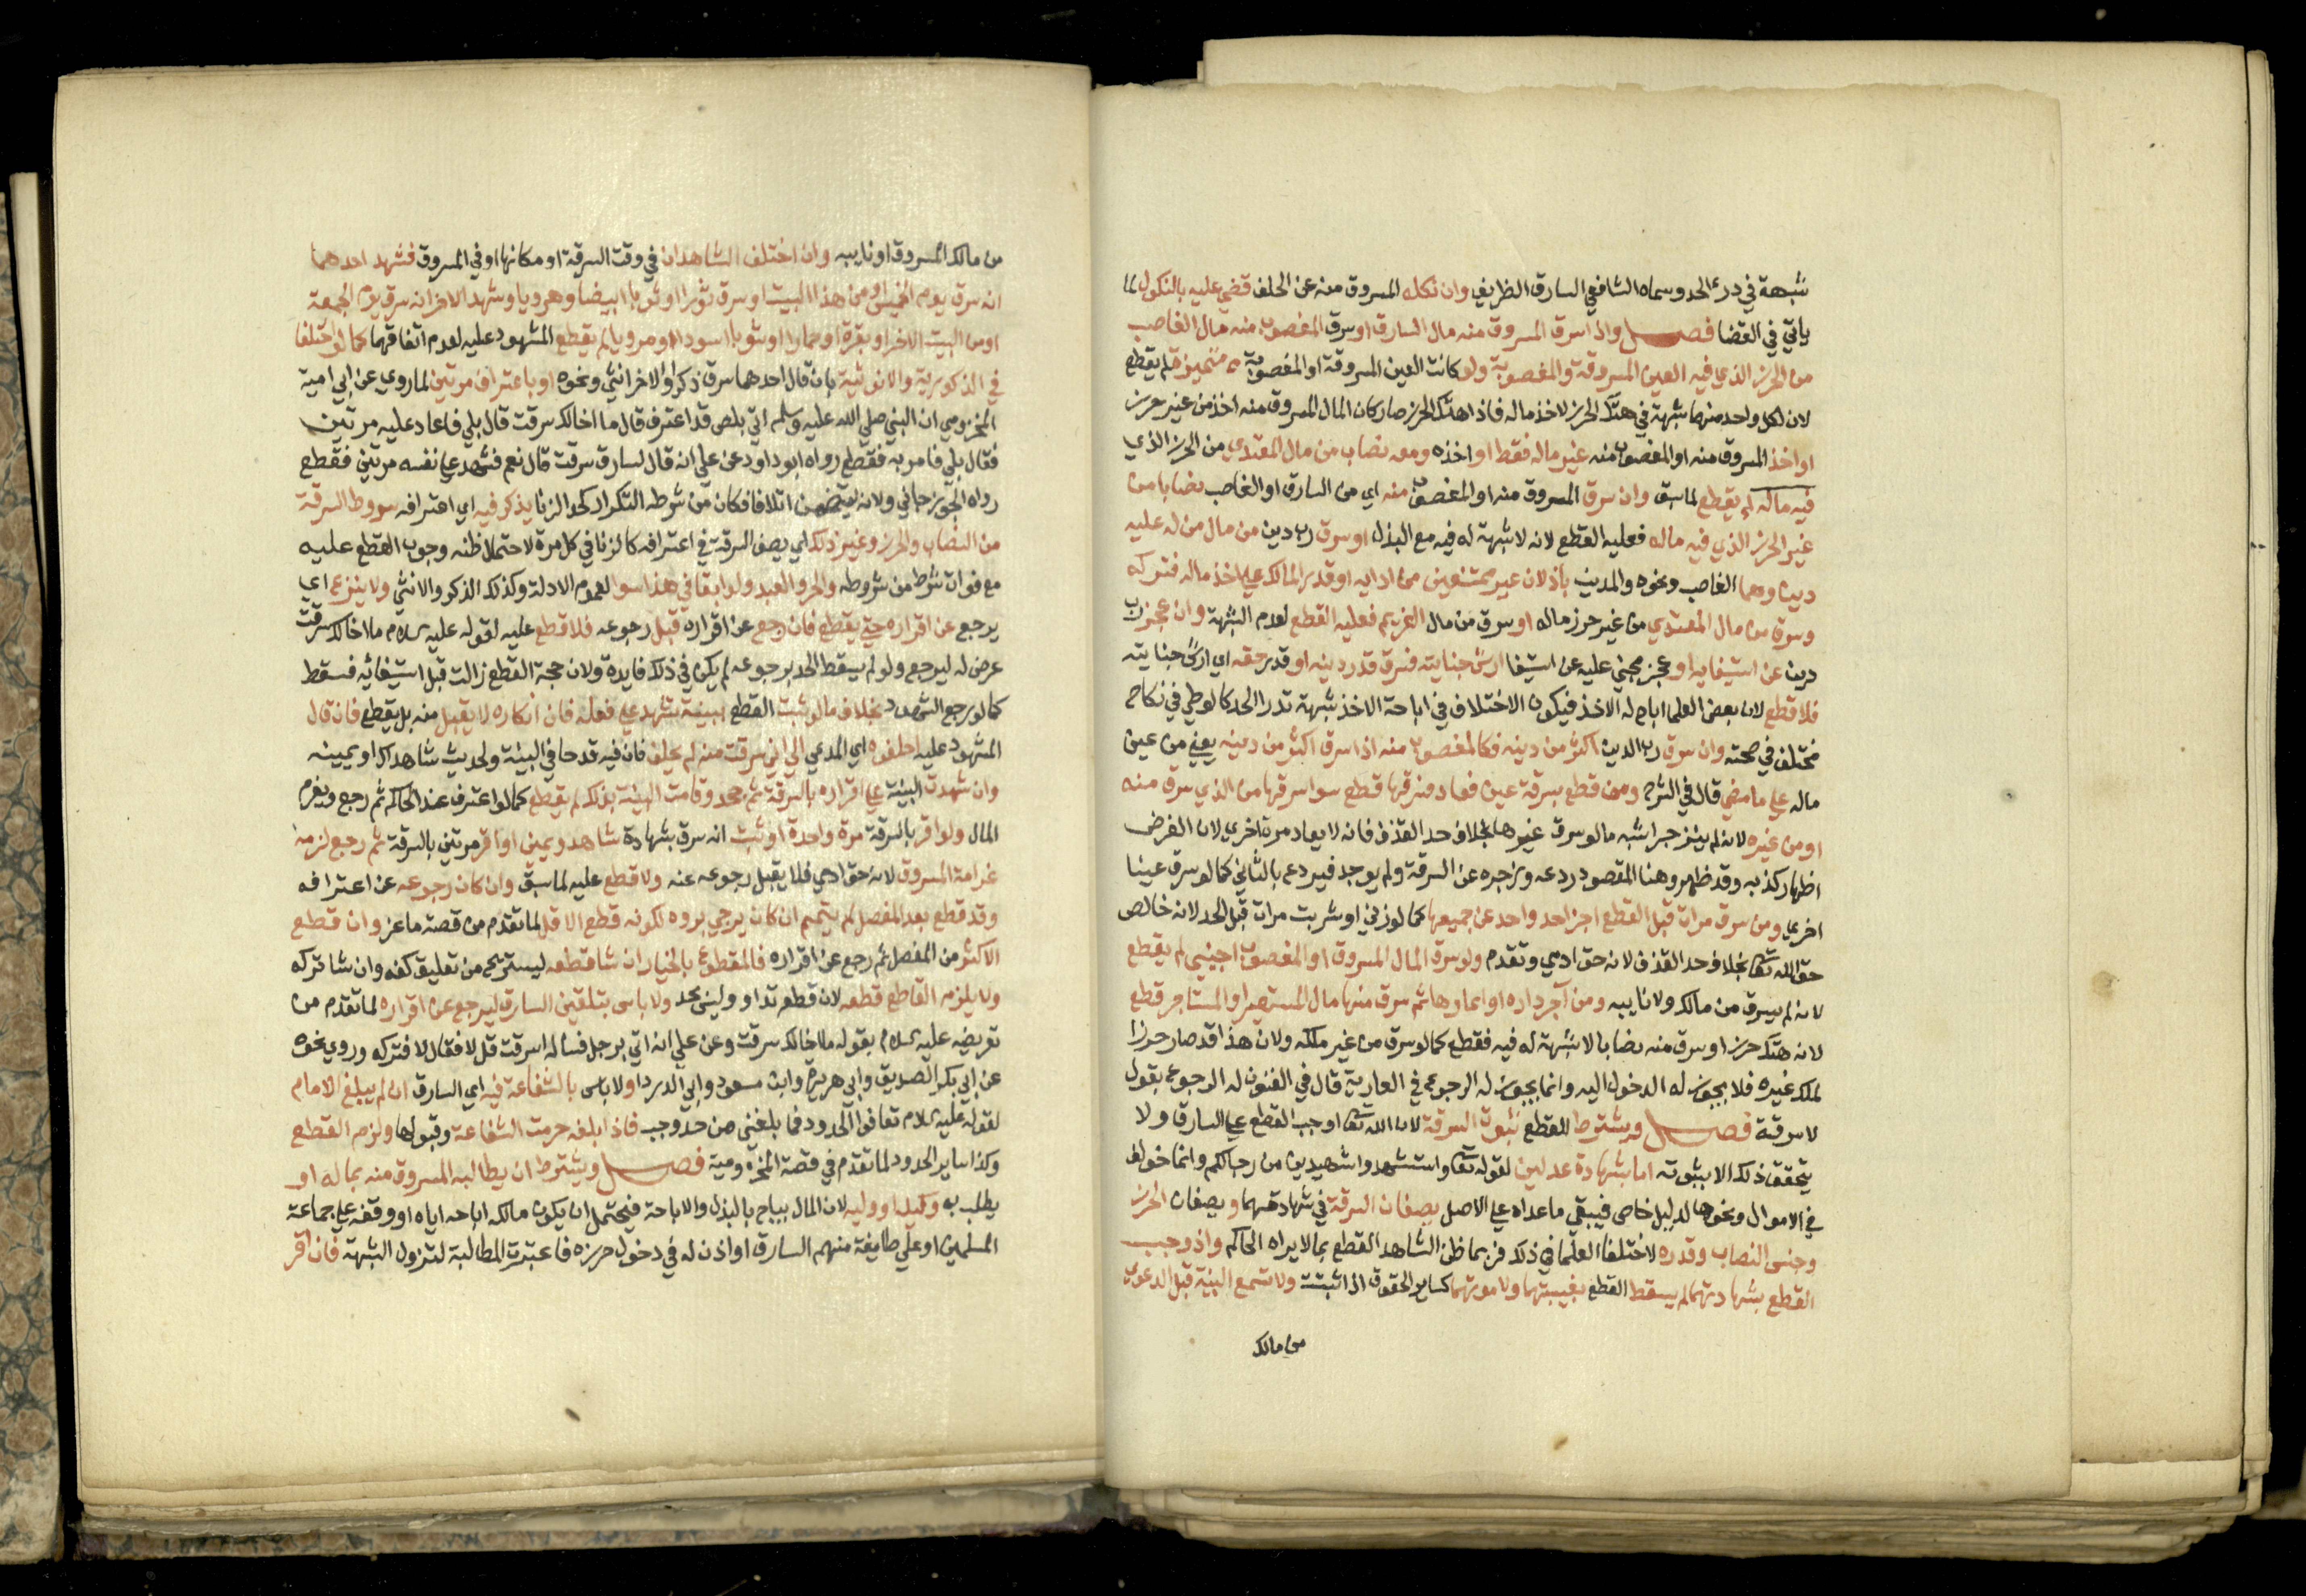 شبهة في درء الحد وسماه الشافعي السارق الظريف وان نكل المسروق منه عن الحلف قضي عليه بالنكول لما
ياتي في القضا فصل واذا سرق المسروق منه مال السارق او سرق المغصوب منه مال الغاصب
من الحرز الذي فيه العين المسروقة والمغصوبة ولو كانت العين المسروقة او المغصوبة متميزة لم يقطع
لان لكل واحد منهما شبهة في هتك الحرز لاخذ ماله فاذا هتك الحرز صار كان المال المسروق منه اخذ من غير حرز
او اخذ المسروق منه او المغصوب منه غير ماله فقط او اخذه ومعه نصاب من مال المعتدي من الحرز الذي
فيه ماله لم يقطع لما سبق وان سرق المسروق منه او المغصوب منه اي من السارق او الغاصب نصابا من
غير الحرز الذي فيه ماله فعليه القطع لانه لا شبهة له فيه مع البذل او سرق رب دين من مال من له عليه
دين وهما الغاصب ونحوه والمدين باذلان غير ممتنعين من ادايه او قدر المالك علي اخذ ماله فتركه
وسرق من مال المعتدي من غير حرز ماله او سرق من مال الغريم فعليه القطع لعدم الشبهة وان عجز رب
دين عن استيفايه او عجز مجني عليه عن استيفا ارش جنايته فسرق قدر دينه او قدر حقه اي ارش جنايته
فلا قطع لان بعض العلما اباح له الاخذ فيكون الاختلاف في اباحة الاخذ شبهة تدرا الحد كالوطي في نكاح
مختلف في صحته وان سرق رب الدين اكثر من دينه فكالمغصوب منه اذا سرق اكثر من دينه يعني من عين
ماله علي ما مضي قال في الشرح ومن قطع بسرقة عين فعاد فسرقها قطع سوا سرقها من الذي سرق منه
او من غيره لانه لم ينزجر اشبه ما لو سرق غيرها بخلاف حد القذف فانه لا يعاد مرة اخري لان الغرض
اظهار كذبه وقد ظهر وهنا المقصود ردعه وزجره عن السرقة ولم يوجد فيردع بالثاني كما لو سرق عينا
اخري ومن سرق مرات قبل القطع اجزا حد واحد عن جميعها كما لو زني او شرب مرات قبل الحد لانه خالص
حق الله تعا بخلاف حد القذف لانه حق ادمي وتقدم ولو سرق المال المسروق او المغصوب اجنبي لم يقطع
لانه لم يسرق من مالك ولا نايبه ومن آجر داره او اعارها ثم سرق منها مال المستعير او المستاجر قطع
لانه هتك حرزا وسرق منه نصابا لا شبهة له فيه فقطع كما لو سرق من غير ملكه ولان هذا قد صار حرزا
لملك غيره فلا يجوز له الدخول اليه وانما يجوز له الرجوع في العارية قال في الفنون له الرجوع بقول
لا سرقة فصل ويشترط للقطع ثبوت السرقة لان الله تعا اوجب القطع علي السارق ولا
يتحقق ذلك الا بثبوته اما بشهادة عدلين لقوله تعا واستشهدوا شهيدين من رجالكم وانما خولف
في الاموال ونحوها لدليل خاص فيبقي ما عداه علي الاصل يصفان السرقة في شهادتهما ويصفان الحرز
وجنس النصاب وقدره لاختلاف العلما في ذلك فربما ظن الشاهد القطع بما لا يراه الحاكم واذ وجب
القطع بشهادتهما لم يسقط القطع بغيبتهما ولا موتهما كساير الحقوق اذا ثبتت ولا تسمع البينة قبل الدعوي
من مالك
من مالك المسروق او نايبه وان اختلف الشاهدان في وقت السرقة او مكانها او في المسروق فشهد احدهما
انه سرق يوم الخميس او من هذا البيت او سرق ثورا او ثوبا ابيضا وهرويا وشهد الاخر انه سرق يوم الجمعة
او من البيت الاخر او بقرة او حمارا او ثوبا اسودا او مرويا لم يقطع المشهود عليه لعدم اتفاقهما كما لو اختلفا
في الذكورية والانوثية بان قال احدهما سرق ذكرا والاخر انثي ونحوه او باعتراف مرتين لما روي عن ابي امية
المخزومي ان النبي صلي الله عليه وسلم اتي بلص قد اعترف قال ما اخالك سرقت قال بلي فاعاد عليه مرتين
فقال بلي فامر به فقطع رواه ابو داود عن علي انه قال لسارق سرقت قال نعم فشهد علي نفسه مرتين فقطع
رواه الجوزجاني ولانه يتضمن اتلافا فكان من شرطه التكرار كحد الزنا يذكر فيه اي اعترافه شروط السرقة
من النصاب والحرز وغير ذلك اي يصف السرقة في اعترافه كالزنا في كل مرة لاحتمال ظنه وجوب القطع عليه
مع فوات شرط من شروطه والحر والعبد ولو ابقا في هذا سوا لعموم الادلة وكذلك الذكر والانثي ولا ينزع اي
يرجع عن اقراره حتي يقطع فان رجع عن اقراره قبل رجوعه فلا قطع عليه لقوله عليه سلام ما اخالك سرقت
عرض له ليرجع ولو لم يسقط الحد برجوعه لم يكن في ذلك فايدة ولان حجة القطع زالت قبل استيفائه فسقط
كما لو رجع الشهود بخلاف ما لو ثبت القطع ببينة تشهد علي فعله فان انكاره لا يقبل منه بل يقطع فان قال
المشهود عليه احلفوه اي المدعي الي اني سرقت منه لم يحلف فان فيه قدحا في البينة ولحديث شاهداك او يمينه
وان شهدت البينة علي اقراره بالسرقة ثم جحد وقامت البينة بذلك لم يقطع كما لو اعترف عند الحاكم ثم رجع ويغرم
المال ولو اقر بالسرقة مرة واحدة او ثبت انه سرق بشهادة شاهد ويمين او اقر مرتين بالسرقة ثم رجع لزمه
غرامة المسروق لانه حق ادمي فلا يقبل رجوعه عنه ولا قطع عليه لما سبق وان كان رجوعه عن اعترافه
وقد قطع بعد المفصل لم يتمم ان كان يرجي بروه لكونه قطع الاقل لما تقدم من قصة ماعز وان قطع
الاكثر من المفصل ثم رجع عن اقراره فالمقطوع بالخيار ان شا قطعه ليستريح من تعليق كفه وان شا تركه
ولا يلزم القاطع قطعه لان قطعه تداو وليس بحد ولا باس بتلقين السارق ليرجع عن اقراره لما تقدم من
تعريضه عليه سلام بقوله ما اخالك سرقت وعن علي انه اتي برجل فساله اسرقت قل لا فقال لا فتركه وروي نحوه
عن ابي بكر الصديق وابي هريرة وابن مسعود وابي الدردا ولا باس بالشفاعة فيه اي السارق ان لم يبلغ الامام
لقوله عليه سلام تعافوا الحدود فما بلغني من حد وجب فاذا بلغه حرمت الشفاعة وقبولها ولزم القطع
وكذا ساير الحدود لما تقدم في قصة المخزومية فصل ويشترط ان يطالبه المسروق منه بماله او
يطلب به وكيله او وليه لان المال يباح بالبذل والاباحة فيحتمل ان يكون مالكه اباحه اياه او وقفه علي جماعة
المسلمين او علي طايفة منهم السارق او اذن له في دخول حرزه فاعتبرت المطالبة لتزول الشبهة فان اقر